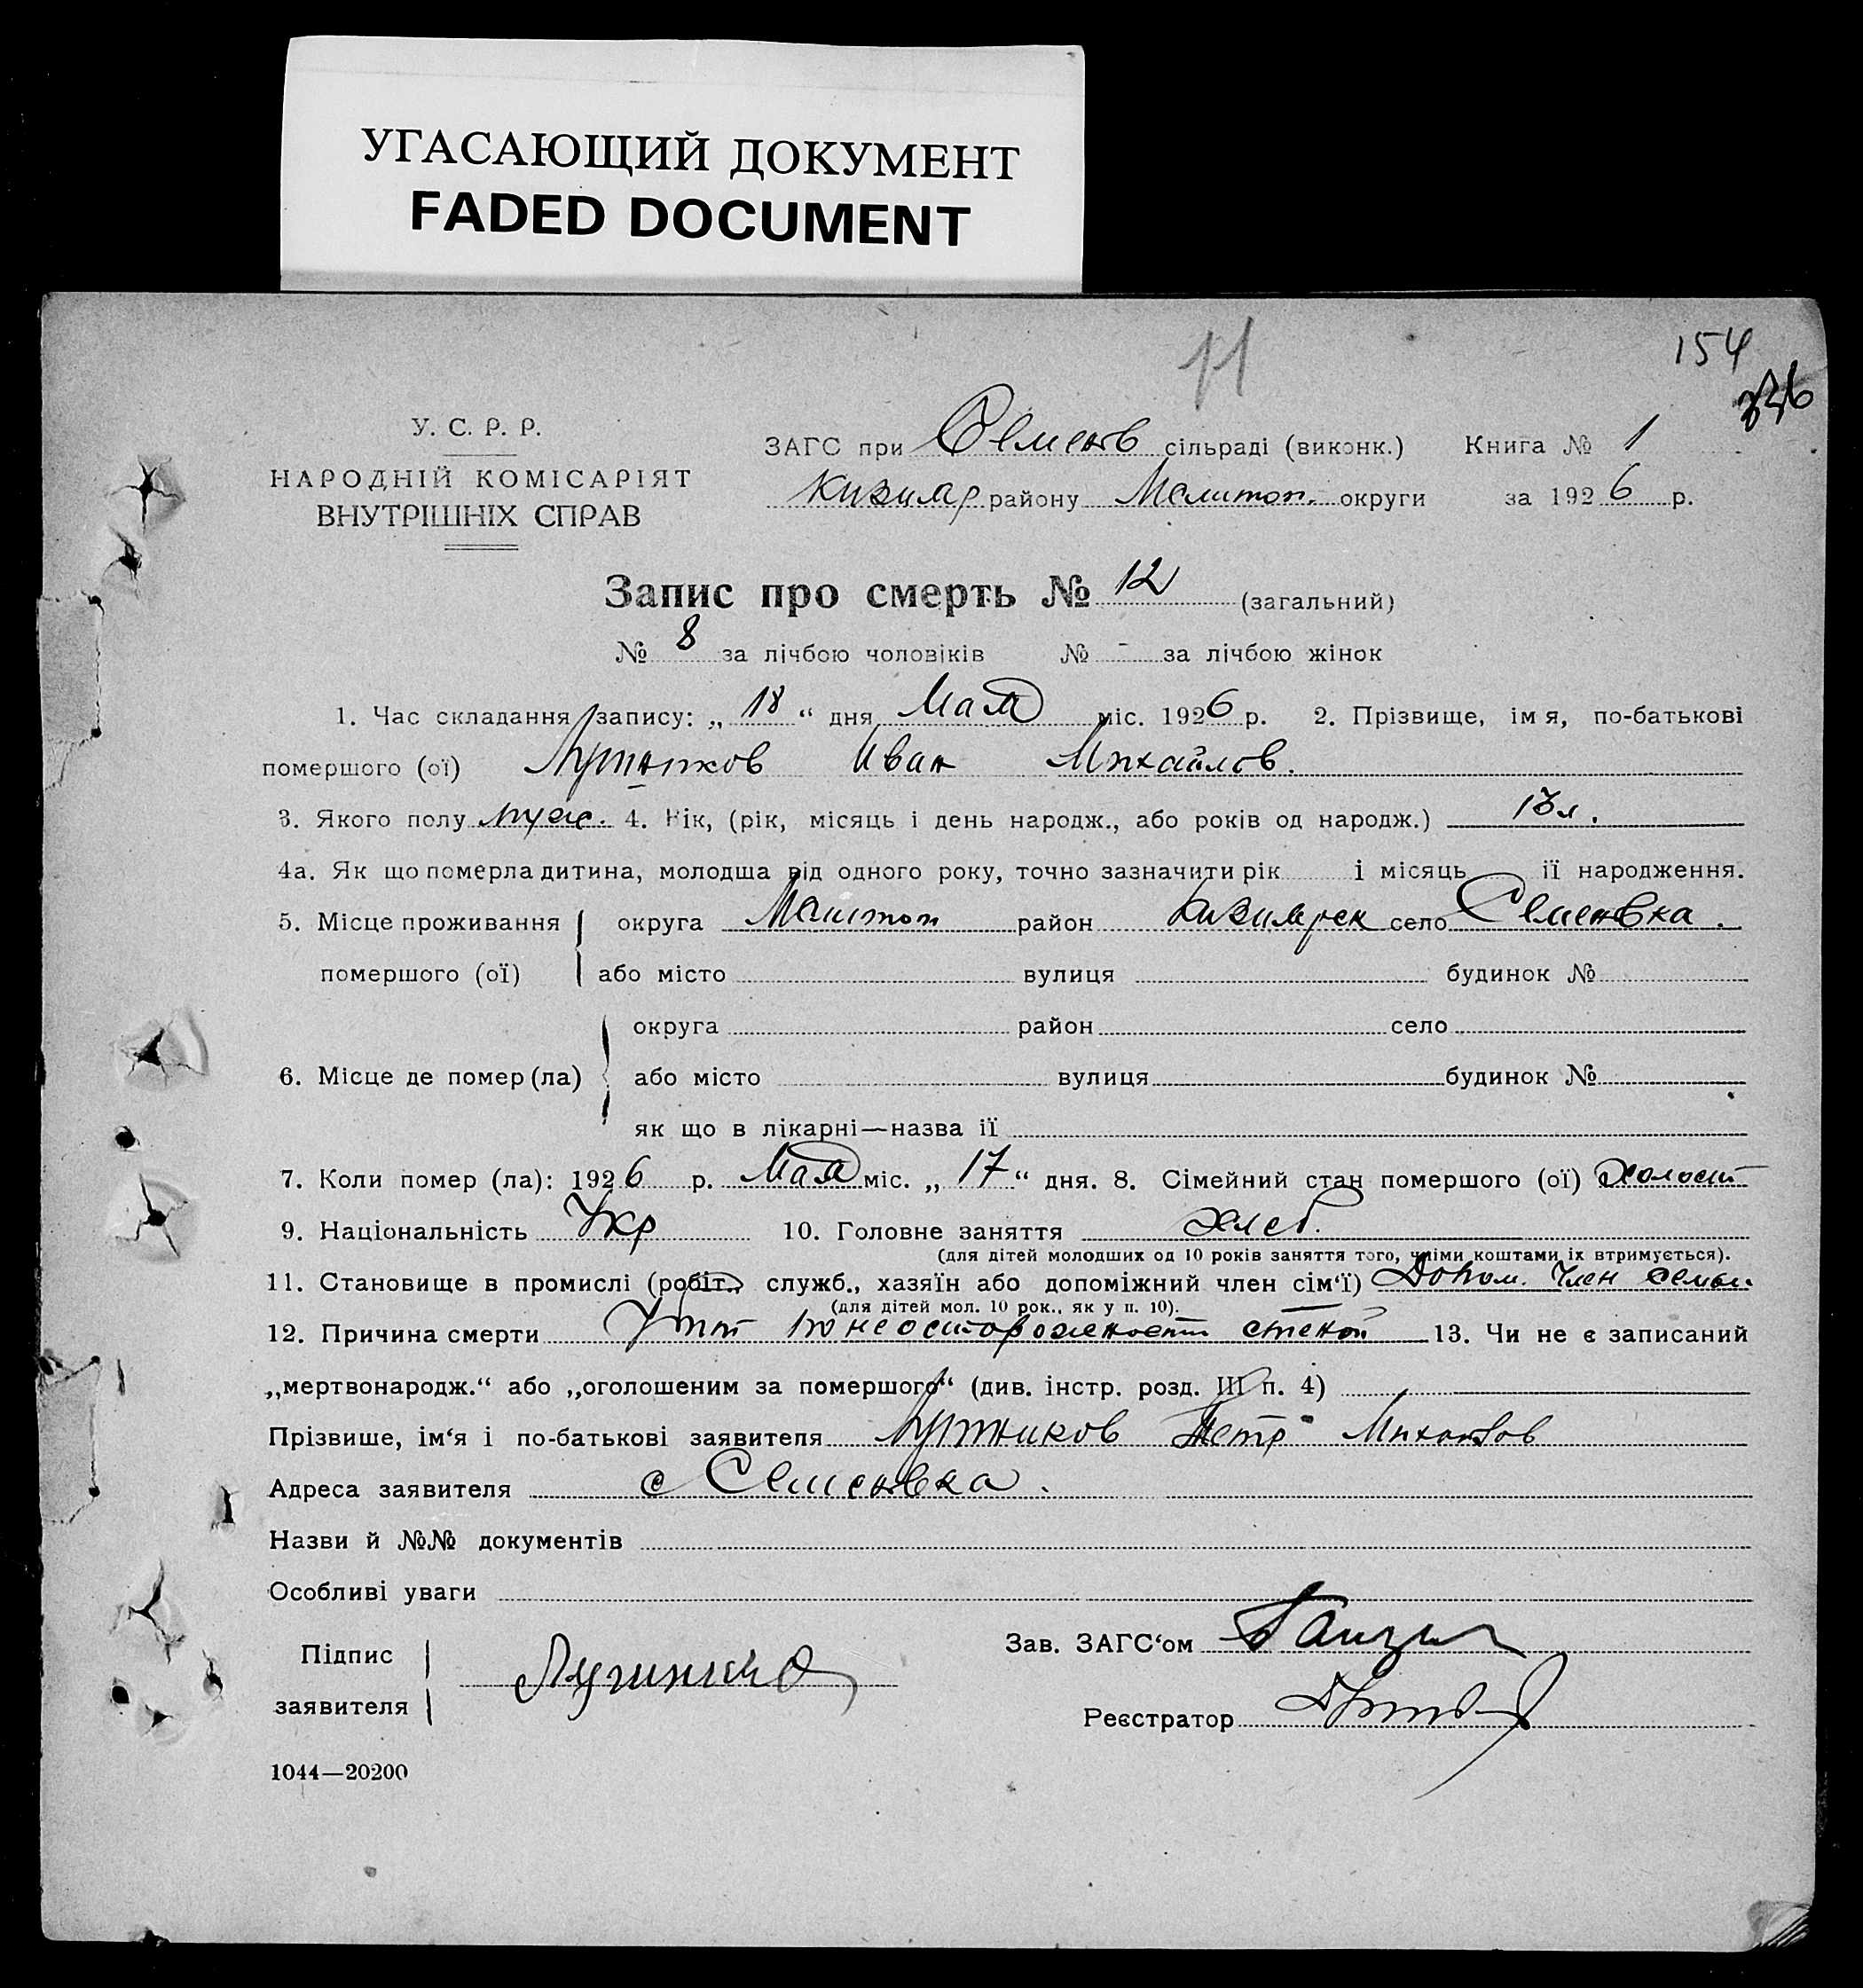 УГАСАЮЩИЙ ДОКУМЕНТ
FADED DOCUMENT
11
154
У. С. Р. Р.
НАРОДНІЙ КОМІСАРІЯТ
ВНУТРІШНІХ СПРАВ
ЗАГС при Семенв сільраді (виконк.) Книга № 1
Кизияр району Мелитоп. округи за 1926 р.
Запис про смерть № 12 (загальний)
№ 8 за лічбою чоловіків № - за лічбою жінок
1. Час складання запису: „ 18 “ дня Мая міс. 1926 р. 2. Прізвище, імя, по-батькові
помершого (ої) Иван Михайлов.
3. Якого полу муж. 4. Рік, (рік, місяць і день народж., або років од народж.)
4а. Як що померла дитина, молодша від одного року, точно зазначити рік і місяць її народження.
5. Місце проживання округа Мелитоп район Кизиярск село Семеновка.
помершого (ої) або місто вулиця будинок №
округа район село
6. Місце де помер (ла) або місто вулиця будинок №
як що в лікарні—назва її
7. Коли помер (ла): 1926 р. Мая міс. „ 17 “ дня. 8. Сімейний стан помершого (ої) холост
9. Національність Укр 10. Головне заняття хлеб.
(для дітей молодших од 10 років заняття того, чиїми коштами їх втримується).
11. Становище в промислі (робіт., служб., хазяїн або допоміжний член сім‘ї) Допом. член семьи
(для дітей мол. 10 рок., як у п. 10).
12. Причина смерти по неосторожности стеной 13. Чи не є записаний
„мертвонародж.“ або „оголошеним за помершого“ (див. інстр. розд. III п. 4)
Прізвище, ім‘я і по-батькові заявителя Петр Михайлов
Адреса заявителя с Семеновка.
Назви й №№ документів
Особливі уваги
Підпис
заявителя
Зав. ЗАГС‘ом
Реєстратор
1044—20200